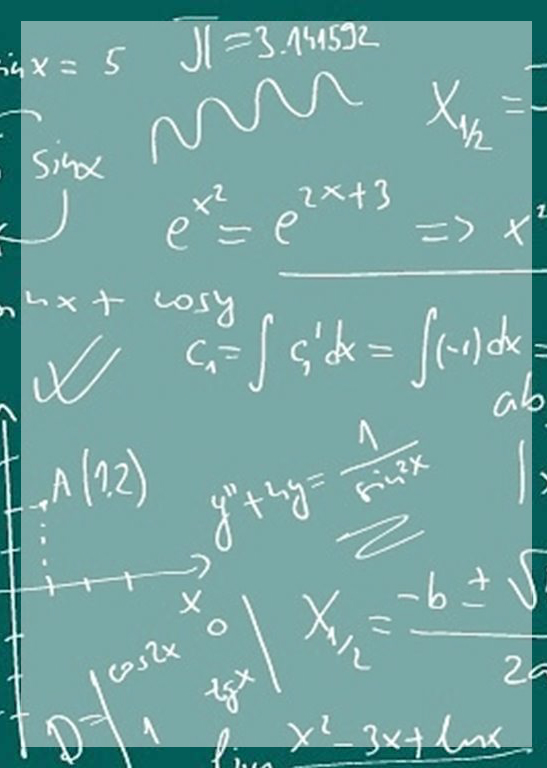 sin x = 5
π = 3.141592
X₁/₂ =
sin x
e^x² = e^2x+3 => x²
nx + cosy
C₁ = ∫ C₁' dx = ∫(-1) dx =
ab
A(1,2)
y'' + 4y = 1/sin²x
x
X₁/₂ = -b ± √
2a
cos2x 0
D = | 1 tgx |
lim x² - 3x + lnx